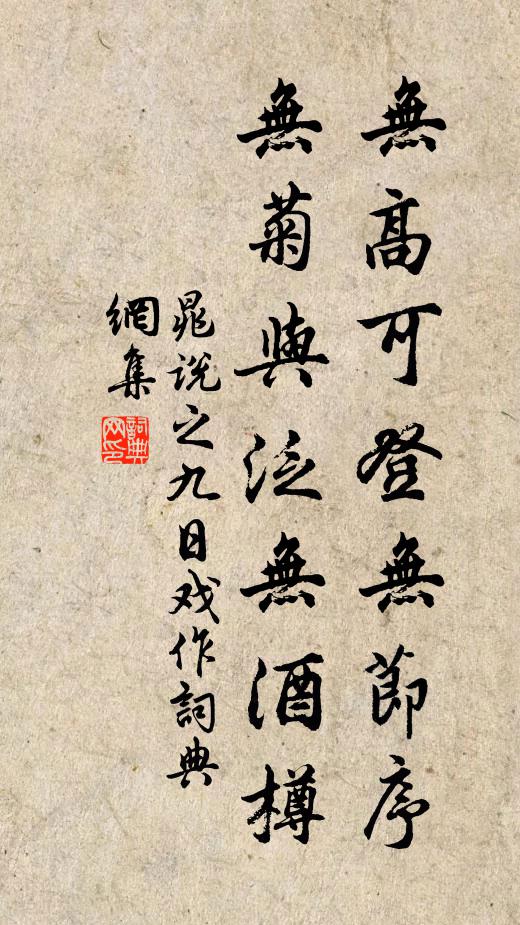 無高可登無節序
無菊與泛無酒樽
晁說之九日戏作詞典
網集
詞典网印